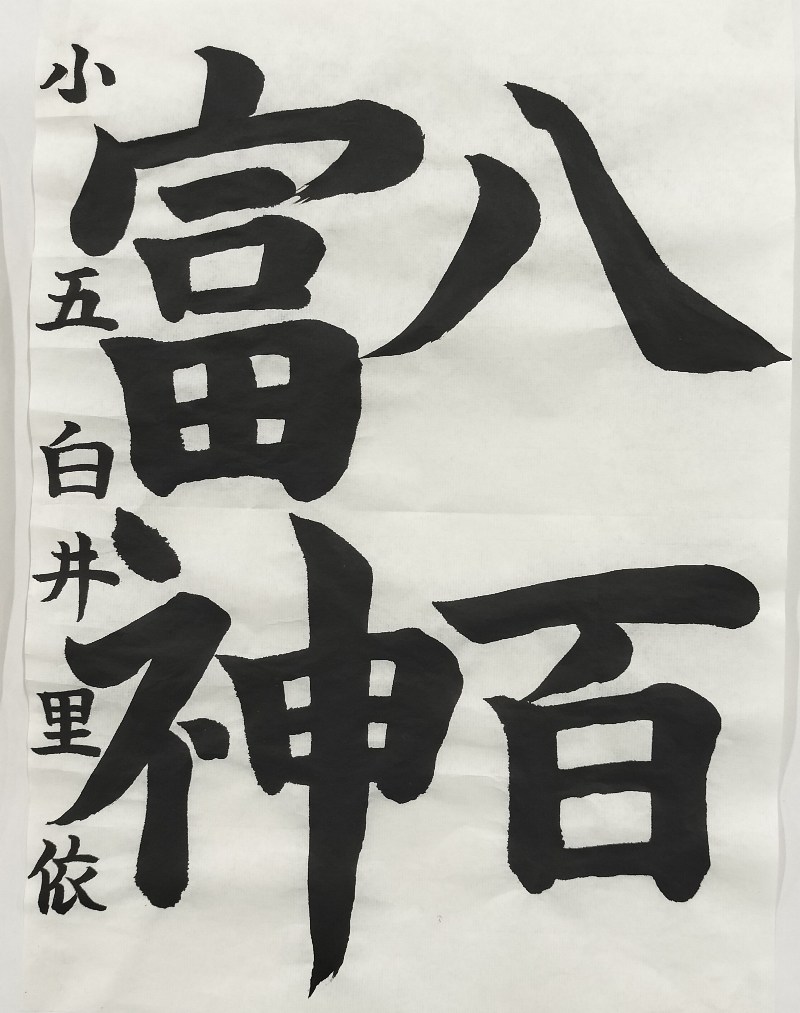 八百
富神
小五 白井里依